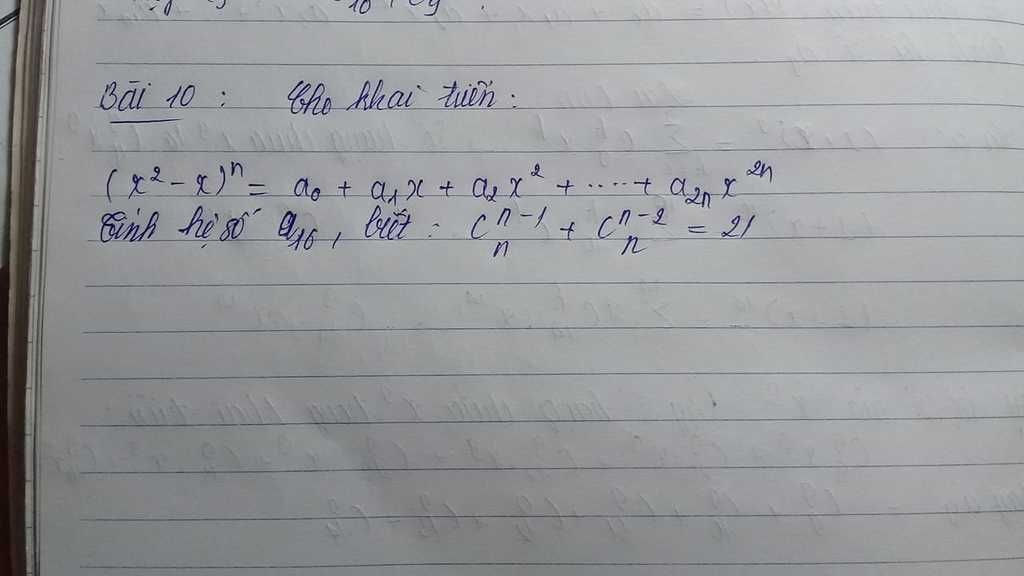 Bài 10 : Cho khai triển :
(x² - x)ⁿ = a₀ + a₁x + a₂x² + ..... + a₂ₙx²ⁿ
Tính hệ số a₁₆ , biết : Cₙⁿ⁻¹ + Cₙⁿ⁻² = 21